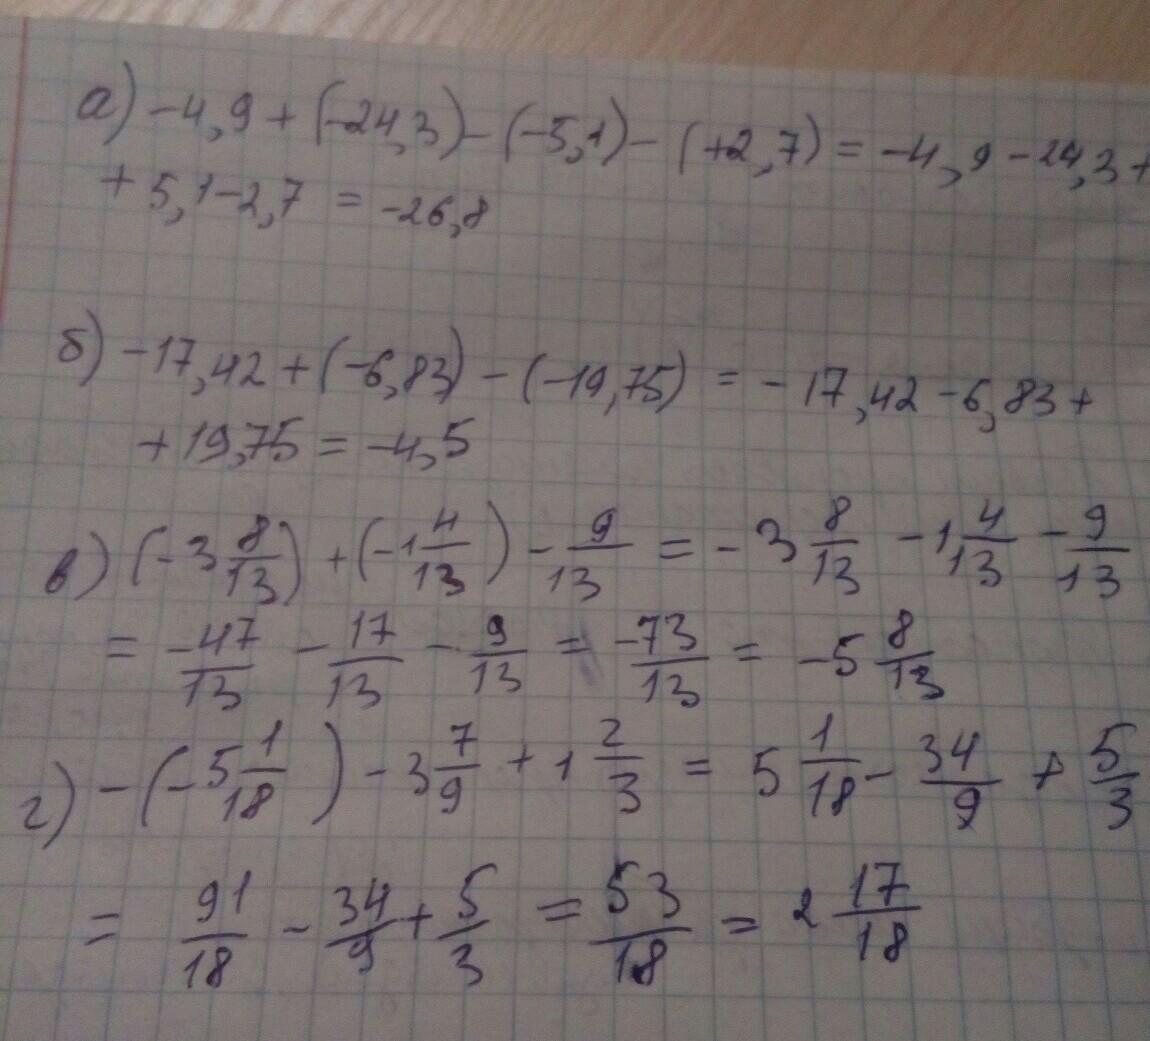 а) -4,9 + (-24,3) - (-5,1) - (+2,7) = -4,9 - 24,3 +
+ 5,1 - 2,7 = -26,8
б) -17,42 + (-6,83) - (-19,75) = -17,42 - 6,83 +
+ 19,75 = -4,5
в) (-3 8/13) + (-1 4/13) - 9/13 = -3 8/13 - 1 4/13 - 9/13
= -47/13 - 17/13 - 9/13 = -73/13 = -5 8/13
г) -(-5 1/18) - 3 7/9 + 1 2/3 = 5 1/18 - 34/9 + 5/3
= 91/18 - 34/9 + 5/3 = 53/18 = 2 17/18